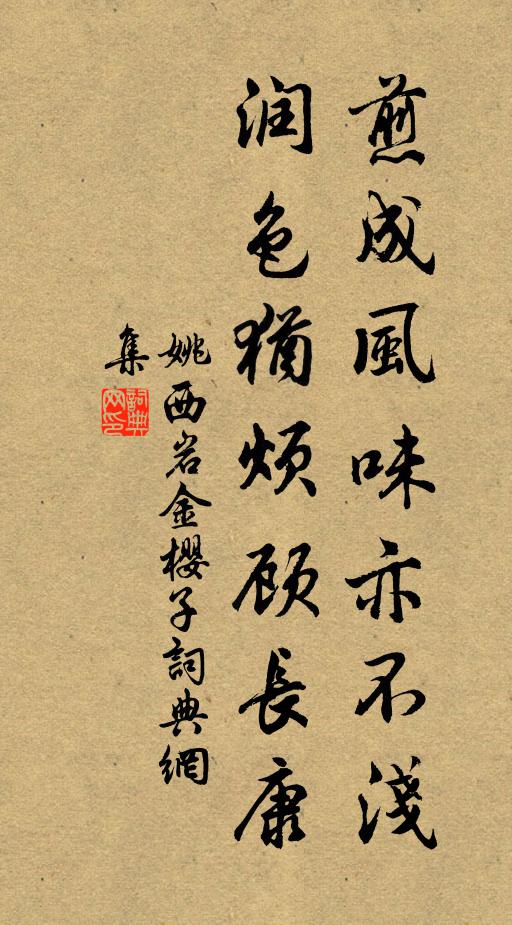 煎成風味亦不淺
润色猶煩顧長康
姚西岩金櫻子詞典網
集
詞典
网印